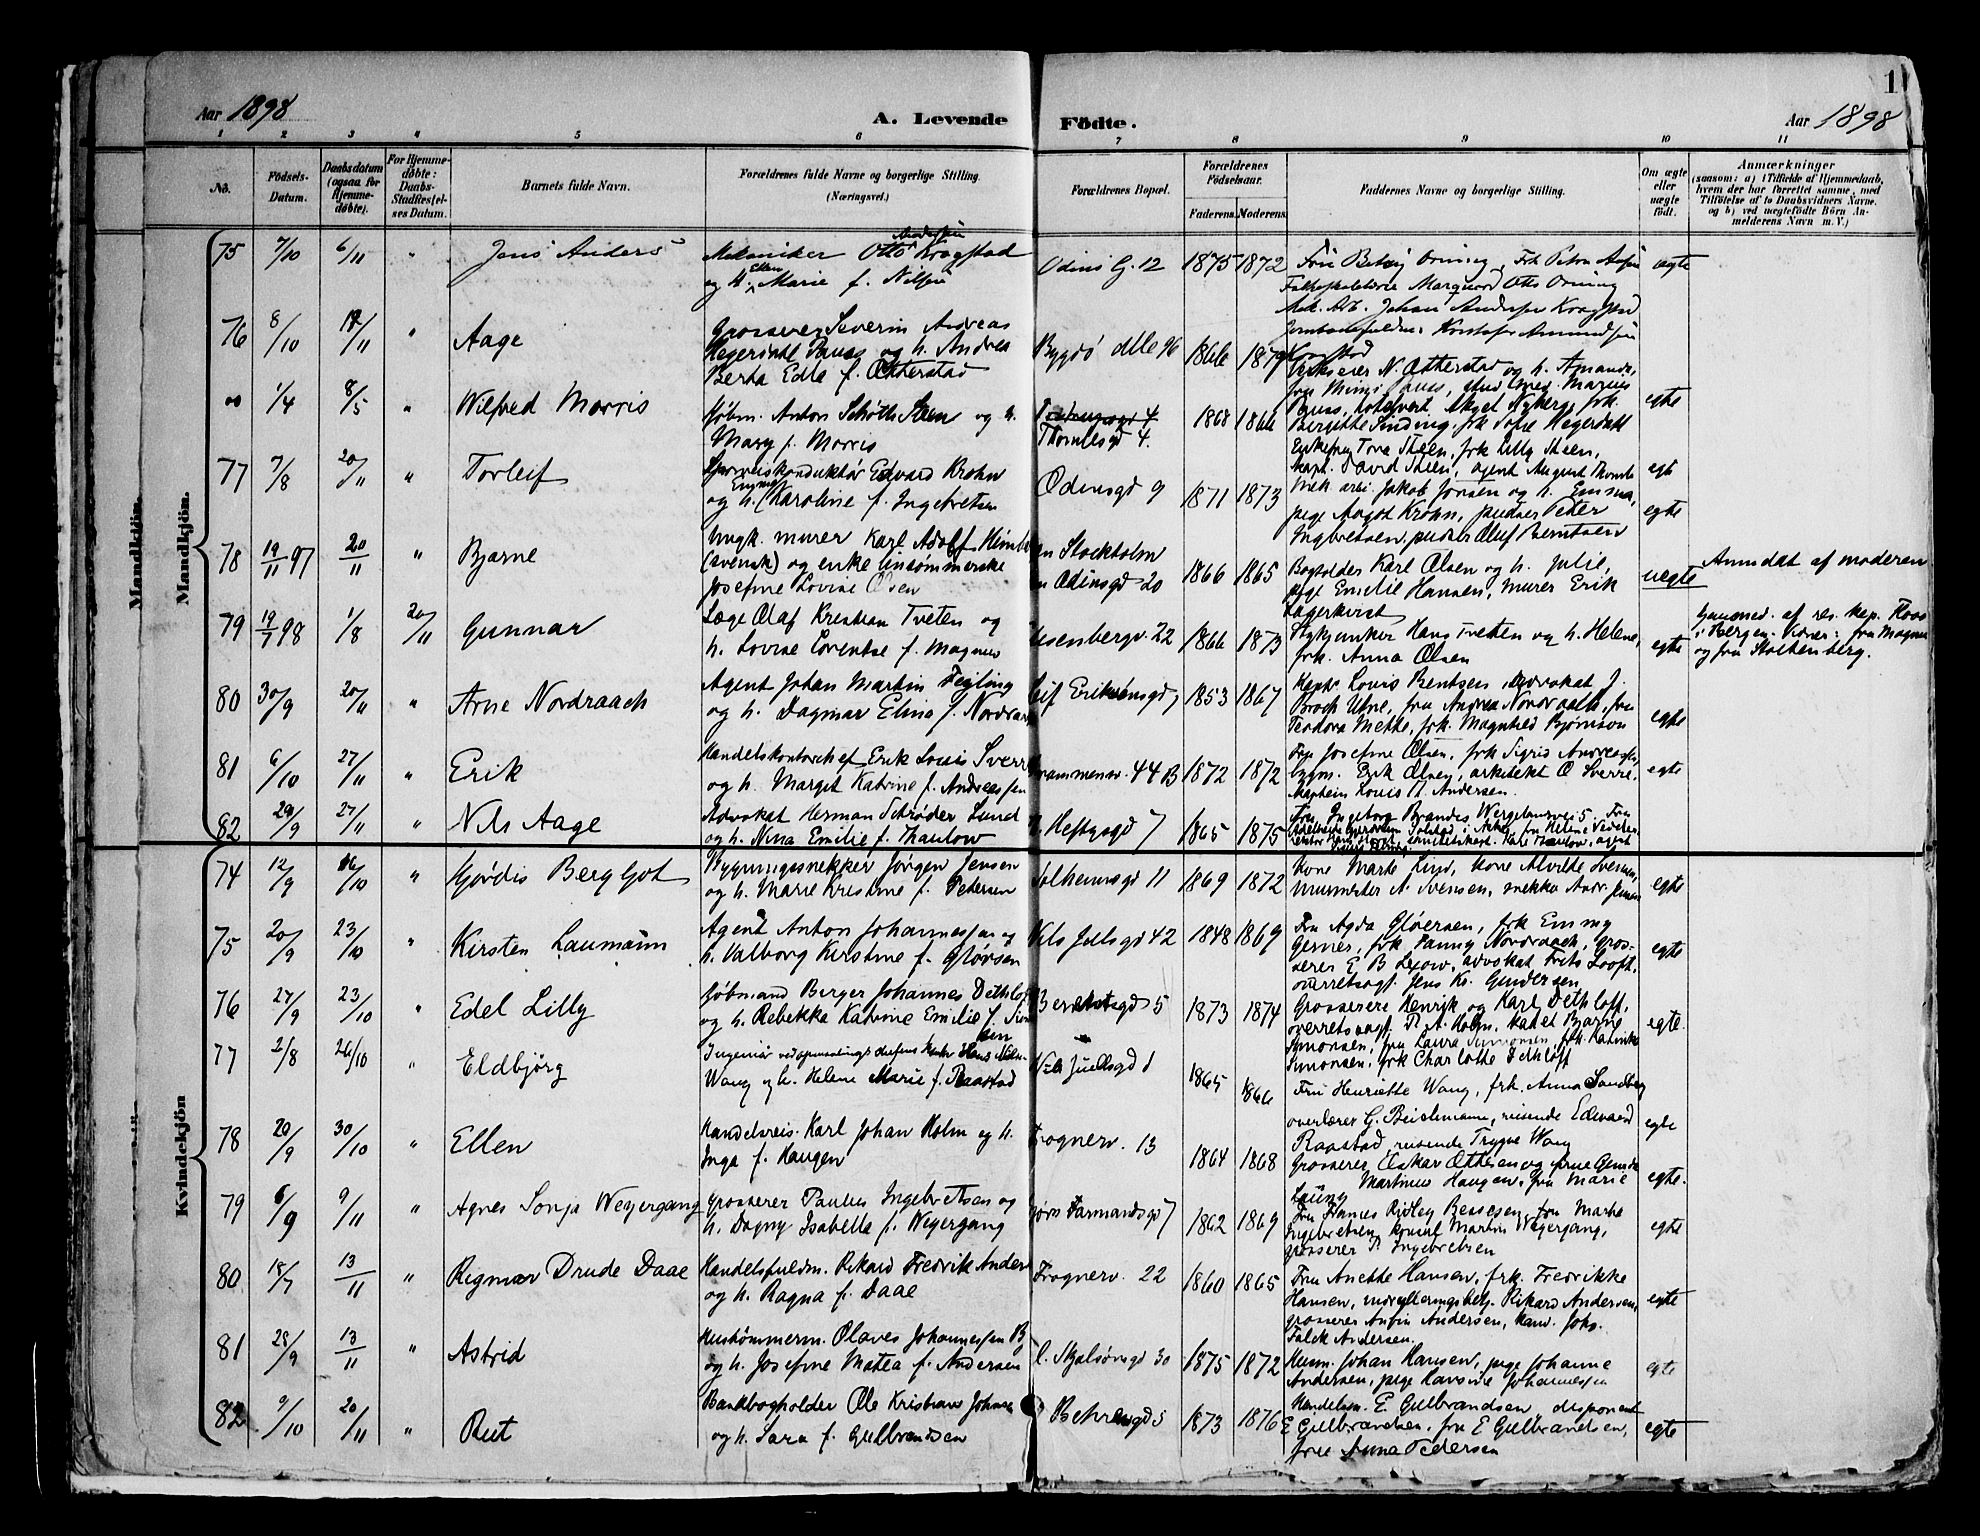 Aar 1898
A. Levende
Födte.
Aar 1898
1
1 2 3 4 5 6 7 8 9 10 11
No.
Födsels-
Datum.
Daabsdatum
(ogsaa for
Hjemme-
døbte).
For Hjemme-
døbte:
Daabs-
Stadfæstel-
ses Datum.
Barnets fulde Navn.
Forældrenes fulde Navne og borgerlige Stilling.
(Næringsvei.)
Forældrenes Bopæl.
Forældrenes
Födselsaar.
Faderens.
Moderens.
Faddernes Navne og borgerlige Stilling.
Om ægte
eller
uægte
født.
Anmærkninger
(saasom: a) i Tilfælde af Hjemmedaab,
hvem der har forrettet samme, med
Tilföielse af to Daabsvidners Navne.
og b) ved uægtefödte Börn An-
melderens Navn m. V.)
Mandkjön.
Mandkjön.
75 7/10 6/11 " Jens Anders
Mekaniker Otto Andersen Kragstad
og h. Ellen Marie f. Nilsen
Odins G. 12 1875 1872
Otto Orning
Johan Andersen Kragstad
Kragstad
ægte
76 8/10 /11 " Aage
Grosserer Severin Andreas
Hegerdahl Pauss og h. Andrea
Berta Edle f. Otterstad
Bygdø alle 96 1866 1879
N. Otterstad og h. Amanda,
fru Mimi Pauss, stud. med. Marius
Pauss,
Birgitte Sinding, frk Sofie Hegerdahl
egte
1/4 8/5 " Wilfred Morris
Kjøbm. Anton Schøth Steen og h.
Mary f. Morris
4
4. 1868 1866
Enkefru Tora Steen, frk Lilly Steen,
kapt. David Steen, agent August
egt
77 7/8 20/11 " Torleif
Sporveiskonduktør Edvard Krohn
og h. Emma Karoline f. Ingebretsen
Odinsgd 9 1871 1873
Mek arb. Jakob Jonsen og h. Emma,
pige Aagot Krohn, pudser Peter
Ingbretsen, pudser Oluf Berntsen
egte
78 19/11 97 20/11 " Bjarne
Ungk. murer Karl Adolf
(svensk) og enke linsømmerske
Josefine Lovise Olsen
Stockholm
Odinsgd 20 1866 1865
Bogholder Karl Olsen og h. Julie,
pige Emilie Hansen, murer Erik
Lagerkvist
uegte
Anmdat af moderen
79 19/1 98 1/8 20/11 Gunnar
Læge Olaf Kristian Tveten og
h. Lovise Lorentse f. Magnus
Uranienborgv. 22 1866 1873
Stykjunker Hans Tvetten og h. Helene,
frk. Anna Olsen
egte
Hjemmed. af res. kap.
i Bergen. fru Magnus
og fru Stoltenberg.
80 30/9 20/11 " Arne Nordraach
Agent Johan Martin
og h. Dagmar Elina f. Nordraach
Leif Eriksøns gd 7 1853 1867
Kaptn Louis Bentsen, advokat J.
Broch Utne, fru Andrea Nordraach, fru
Teodora Mette, frk. Magnhild Bjørnson
egte
81 6/10 27/11 " Erik
Handelskontorchef Erik Louis Sverre
og h. Margit Katrine f. Andreassen
Drammensv. 44 B 1872 1872
Fru Josefine Olsen, frk Sigrid Andreassen,
bygm. Erik Olsen, arkitekt O Sverre,
kaptein Louis A. Andersen.
egte
82 29/9 27/11 " Nils Aage
Advokat Herman Schrøder Lund
og h. Nina Emilie f. Thaulow
Heftyesgd 7 1865 1875
Fru Ingeborg Brandes Wergelandsvei 5. Fru
Kvindekjön
74 12/9 16/10 " Hjørdis Bergljot
Bygningssnekker Jørgen Jensen
og h. Marie Kristine f. Pedersen
Solheimsgd 11 1869 1872
Kone Marte Lind, kone Alvilde Svensen,
murmester A. Svensen, snekker Andr. Jensen
egte
75 20/9 23/10 " Kirsten Laumann
Agent Anton Johannessen og
h. Valborg Kirstine f. Gløersen
Nils Juelsgd 42 1848 1869
Fru Agda Gløersen, frk Emmy
Gerner, frk Fanny Nordraach, gros-
serer E B Lexow, advokat Frits Looft,
overretssagf. Jens Kr. Gundersen
egte
76 27/9 23/10 " Edel Lilly
Kjøbmand Berger Johannes Dethloff
og h. Rebekka Katrine Emilie f. Simon
sen
Behrensgd 5 1873 1874
Grosserere Henrik og Karl Dethloff,
overretssagf. P. A. Holm, kadet Bjarne
Simonsen, fru Laura Simonsen, frk. Katinka
Simonsen, frk Charlotte Dethloff
egte.
77 2/8 26/10 " Eldbjörg
Ingeniør ved opmaalings chefens kontor Hans
Wang og h. Helene Marie f. Raastad
Nils Juelsgd 1 1865 1866
Fru Henriette Wang, frk. Anna Sandberg
overlærer G. Beichmann, reisende Edward
Raastad, reisende Trygve Wang
egte
78 20/9 30/10 " Ellen
Handelsreis. Karl Johan Holm og h.
Inga f. Haugen
Frognerv. 13 1864 1868
Grosserer Oskar Ottesen og frue
Martinus Haugen, fru Marie
egte.
79 6/9 9/11 " Agnes Sonja Weyergang
Grosserer Paulus Ingebretsen og
h. Dagny Isabella f. Weyergang
Bjørn Farmandsgd 7 1862 1869
Fru Frances Ridley Bessesen, fru Marte
Ingebretsen, konsul Martin Weyergang,
grosserer P. Ingebretsen
egte
80 18/7 13/11 " Rigmor Drude Daae
Handelsfuldm. Rikard Fredrik Anders
og h. Ragna f. Daae
Frognerv. 22 1860 1865
Fru Anette Hansen, frk. Fredrikke
Hansen, Rikard Andersen,
grosserer Anfin Andersen, kand. Johs.
Falck Andersen.
egte
81 28/9 13/11 " Astrid
Hustømmerm. Olaves Johannessen B
og h. Josefine Matea f. Andersen
C. Skjelsønsgd 30 1875 1872
Husm. Johan Hansen, pige Johanne
Andersen, pige Hansine Johannessen
egte
82 9/10 20/11 " Rut
Bankbogholder Ole Kristian Johnsen
og h. Sara f. Gulbrandsen
Behrensgd 5 1873 1876
Handelsm. E. Gulbrandsen, disponent
E Gulbrandsen, fru E Gulbrandsen,
frue Anna Pedersen
egte